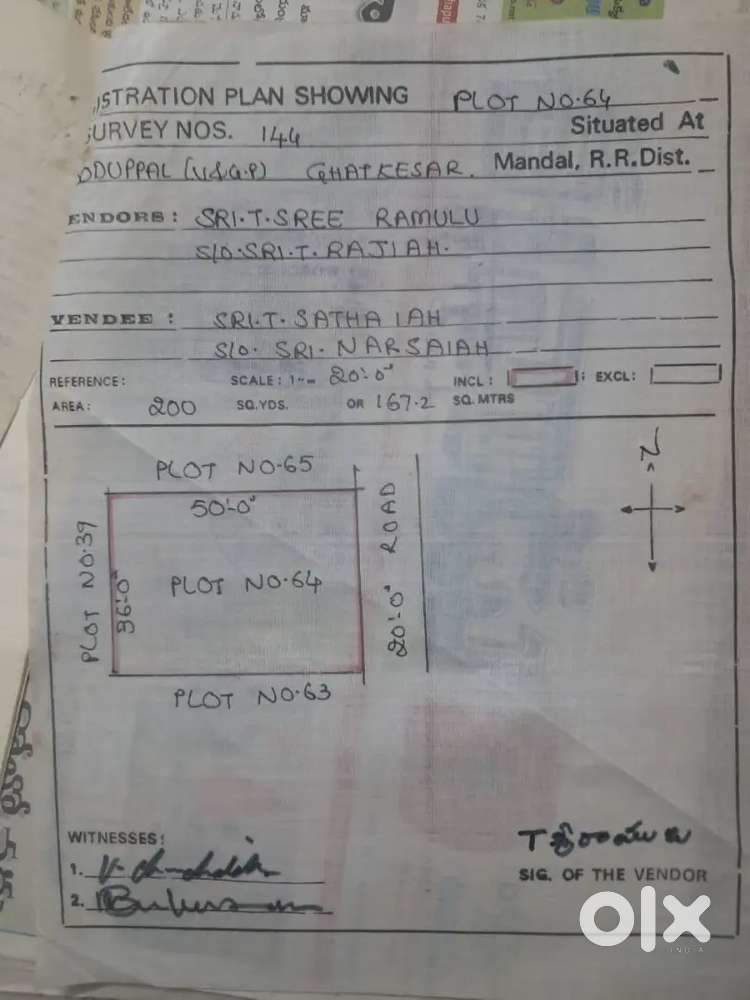 ISTRATION PLAN SHOWING PLOT NO.64
SURVEY NOS. 144 Situated At
ODUPPAL (V&G.P) GHATKESAR. Mandal, R.R.Dist.
ENDORS: SRI.T.SREE RAMULU
S/O.SRI.T.RAJIAH.
VENDEE : SRI.T.SATHAIAH
S/O. SRI. NARSAIAH
REFERENCE: SCALE: 1"= 20'.0" INCL: EXCL:
AREA: 200 SQ.YDS. OR 167.2 SQ.MTRS
PLOT NO.65
N
50'-0"
PLOT NO.39
36'-0"
PLOT NO.64
20'-0" ROAD
PLOT NO.63
WITNESSES:
1.
2.
T శ్రీరాములు
SIG. OF THE VENDOR
olx
INDIA